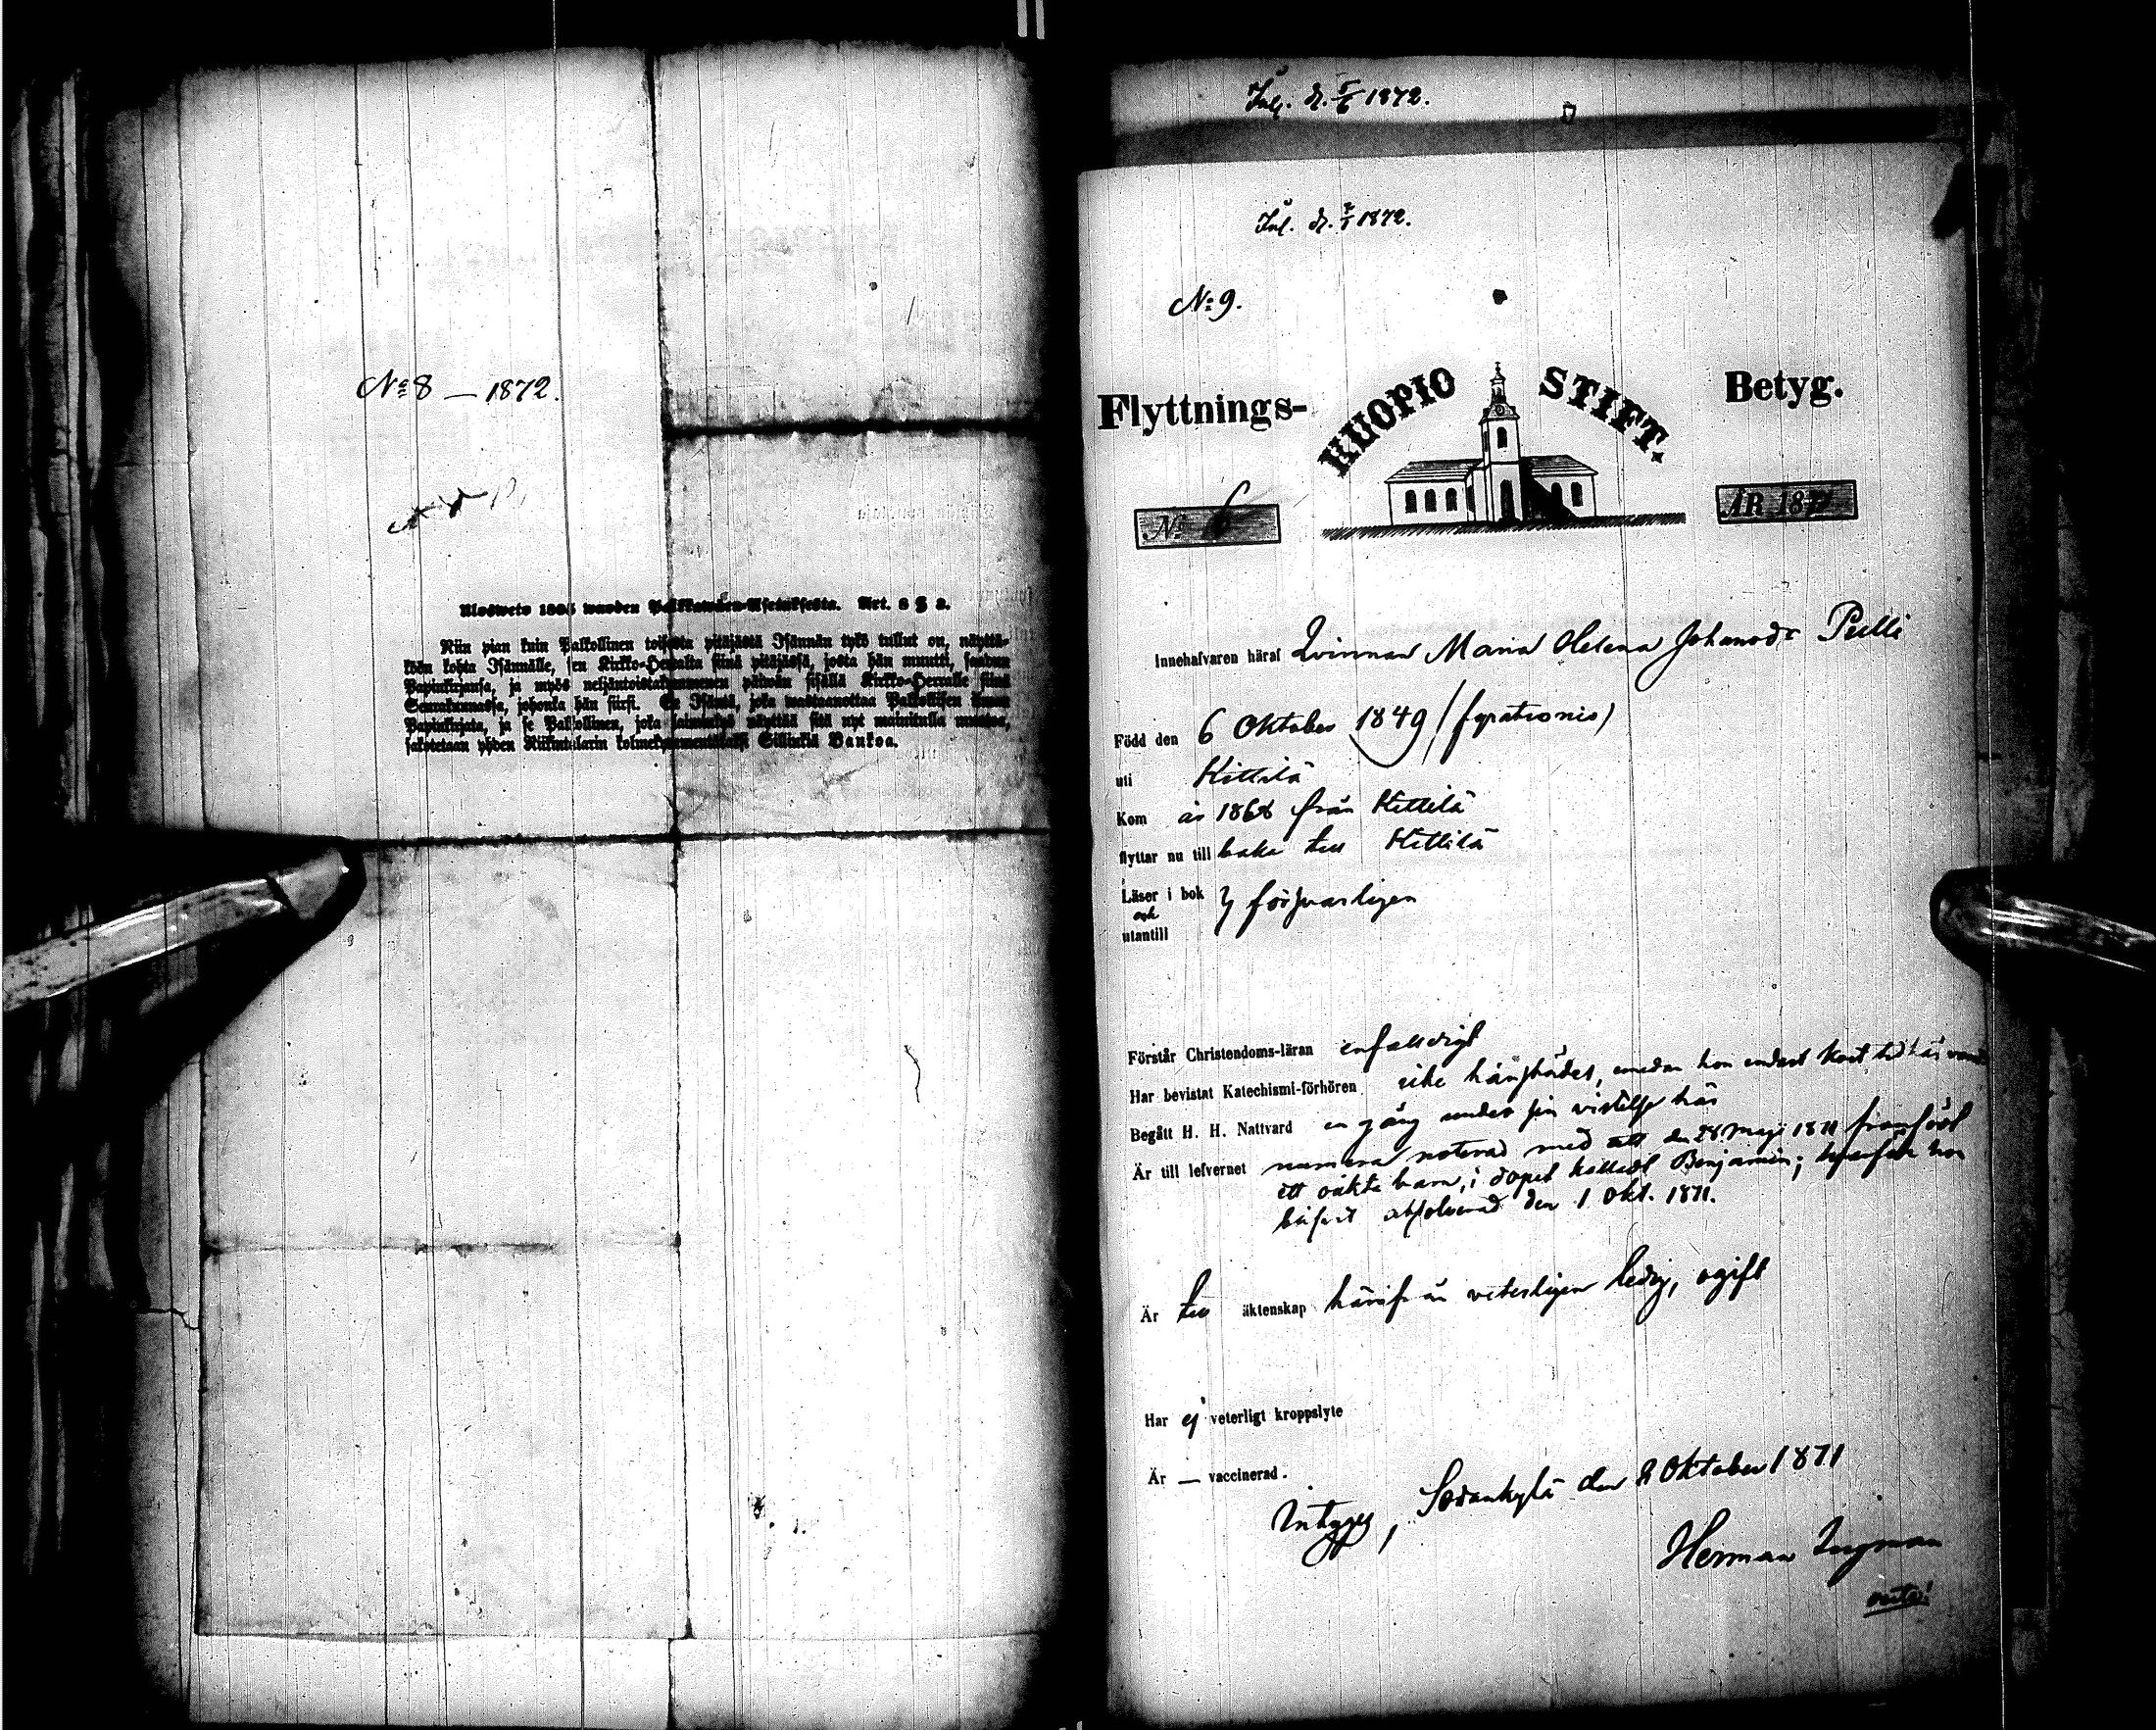 No 8 — 1872.
Uloswето 1865 wuoden Palkkawäen-Asetuksesta. Art. 8 § 2.
Niin pian kuin Palkollinen toisesta pitäjästä Isännän tykö tullut on, näyttä-
köön kohta Isännälle, sen Kirkko-Herralta siinä pitäjässä, josta hän muutti, saadun
Papinkirjansa, ja myös neljäntoistakymmenen päiwän sisällä Kirkko-Herralle siinä
Seurakunnassa, johonka hän siirsi. Se Isäntä, joka wastaanottaa Palkollisen ilman
Papinkirjata, ja se Palkollinen, joka laiminlyö näyttää sitä nyt mainitulla muotoa,
sakotetaan yhden Riikintalarin kolmekymmentäkaksi Sillinkiä Bankoa.
Inl. d. 5/6 1872.
Inl. d. 1872.
No 9.
Flyttnings- KUOPIO STIFT. Betyg.
No 6 ÅR 1871
Innehafvaren häraf Qvinnan Maria Helena Johansdr Pulli
Född den 6 Oktober 1849 /fyrationio/
uti Kittilä
Kom år 1868 från Kittilä
flyttar nu till baka till Kittilä
Läser i bok
och
utantill } försvarligen
Förstår Christendoms-läran enfaldigt
Har bevistat Katechismi-förhören icke härstädes, medan hon endast kort tid här
Begått H. H. Nattvard en gång under sin vistelse här
Är till lefvernet numera noterad med att den 28 Maji 1871 framfödt
ett oäkta barn, i dopet kalladt Benjamin; hon
absolverad den 1 Okt. 1871.
Är till äktenskap härifrån veterligen ledig, ogift
Har ej veterligt kroppslyte
Är — vaccinerad.
Intygas, Sodankylä den 8 Oktober 1871
Herman Ingman
verte!